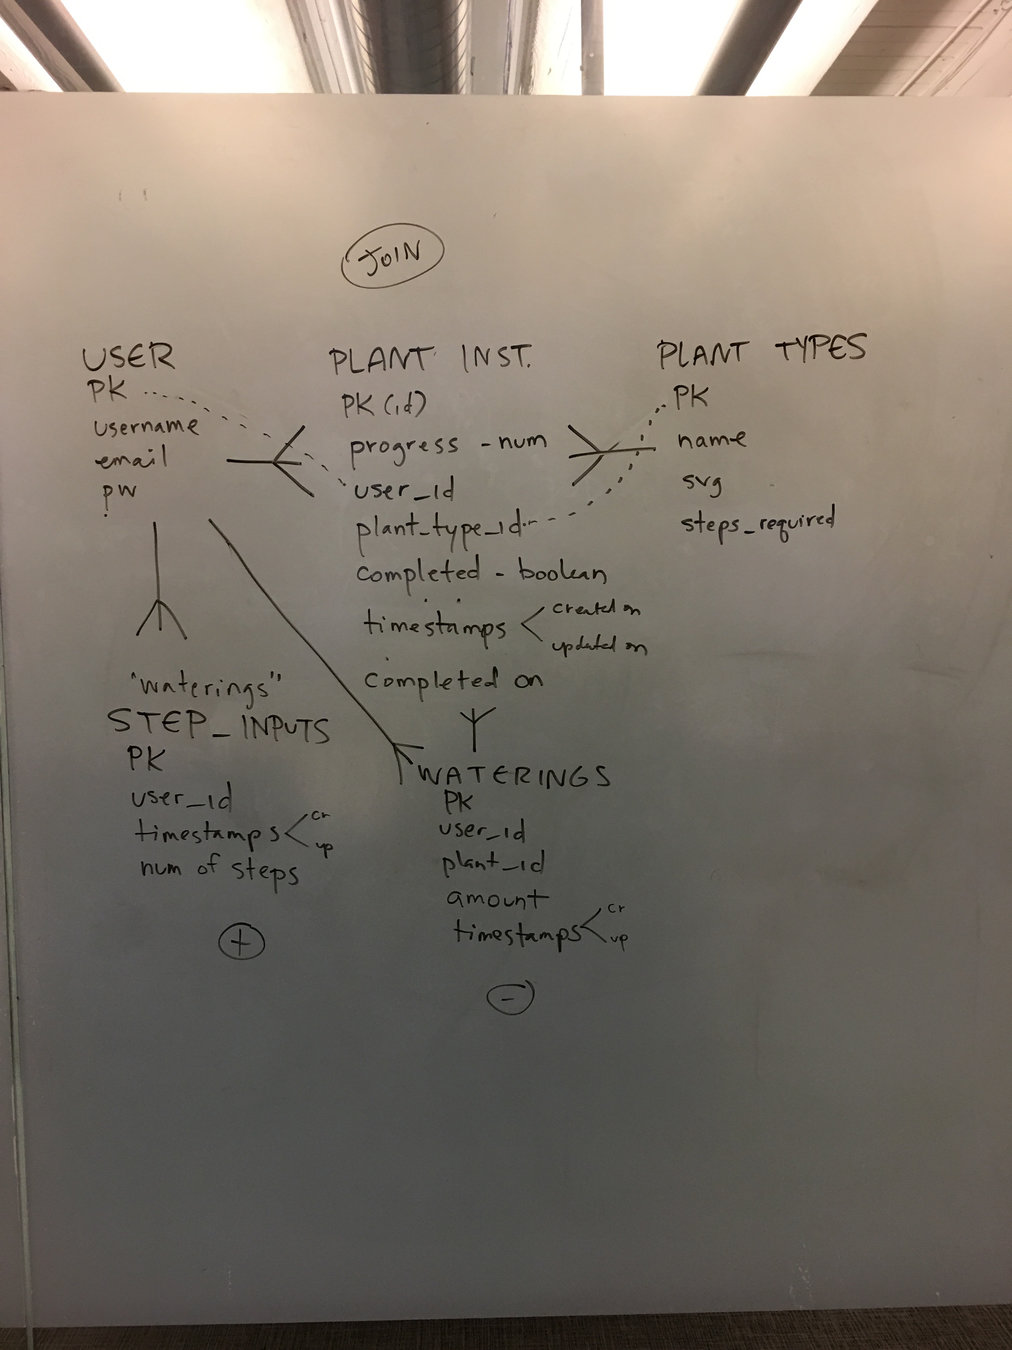 JOIN
USER
PK
username
email
pw
PLANT INST.
PK (id)
progress - num
user_id
plant_type_id
completed - boolean
timestamps
created on
updated on
completed on
PLANT TYPES
PK
name
svg
steps_required
"waterings"
STEP_INPUTS
PK
user_id
timestamps
cr
up
num of steps
+
WATERINGS
PK
user_id
plant_id
amount
timestamps
cr
up
-